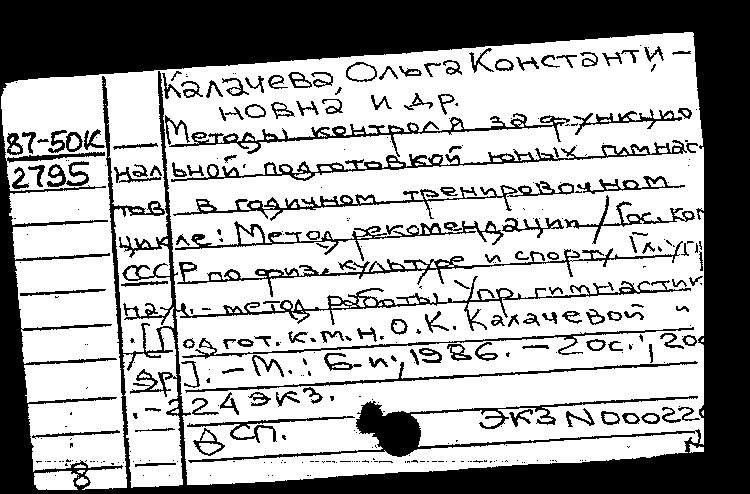 Калачева, Ольга Константи-
новна и др.
87-50К Методы контроля за функцио
2795 нальной подготовкой юных гимнас-
тов в годичном тренировочном
цикле: Метод. рекомендации / Гос. ком
СССР по физ. культуре и спорту. Гл. упр
науч.-метод. работы. Упр. гимнастики
; [Подгот. к.м.н. О.К. Калачевой и
др]. - М.: Б.и., 1986. - 20с.; 20с
. - 224 экз.
ДСП. ЭКЗ N 000220
8